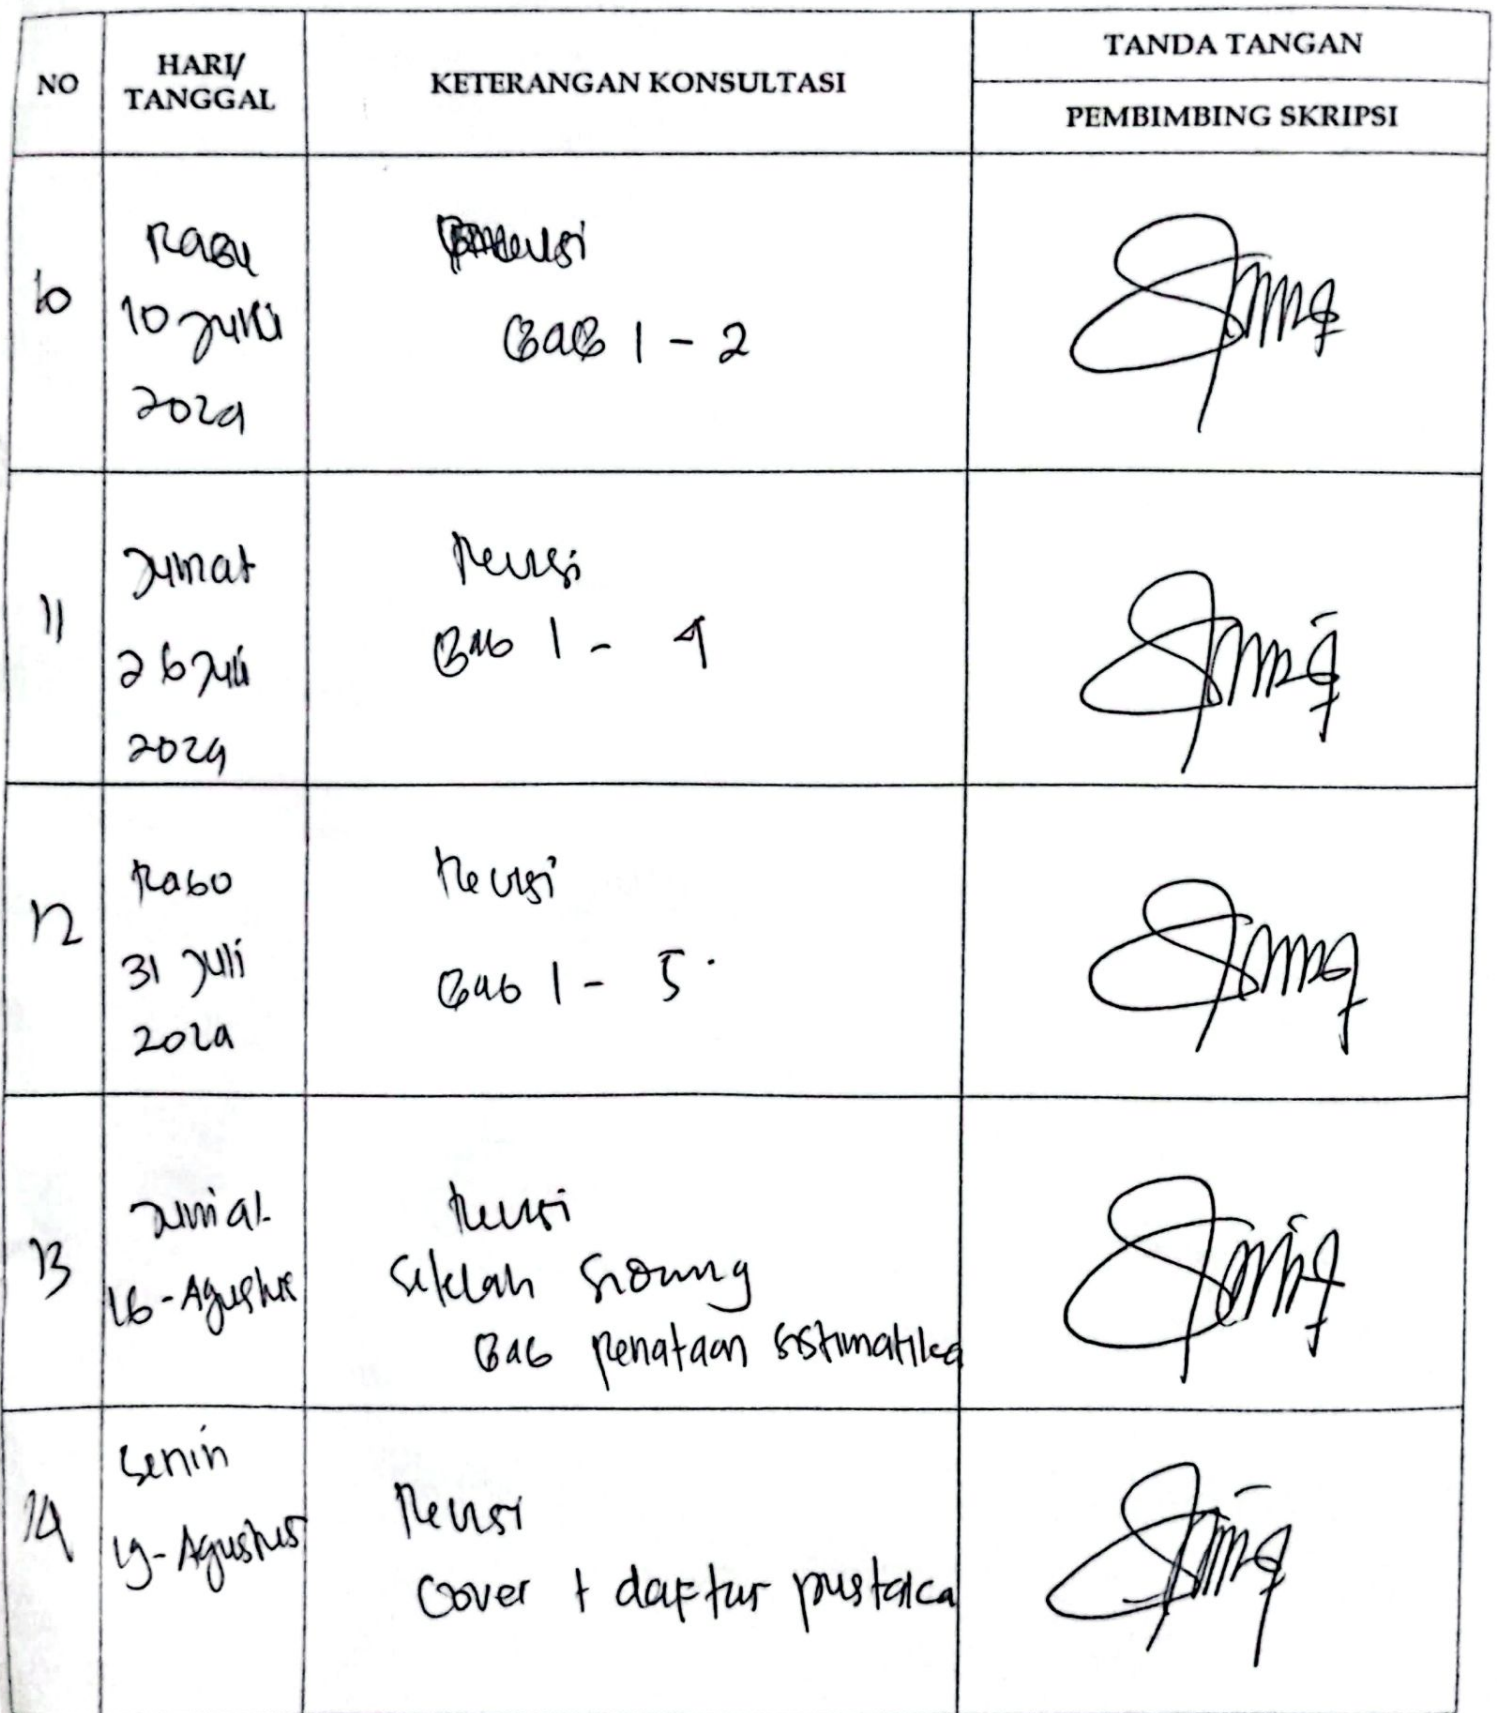 NO
HARI/
TANGGAL
KETERANGAN KONSULTASI
TANDA TANGAN
PEMBIMBING SKRIPSI
10
Rabu
10 Juli
2024
Revisi
Bab 1 - 2
11
Jumat
26 Juli
2024
Revisi
Bab 1 - 4
12
Rabo
31 Juli
2024
Revisi
Bab 1 - 5
13
Jumat
16 - Agustus
Revisi
Setelah Sidang
Bab penataan sistimatika
14
Senin
19 - Agustus
Revisi
Cover + daftar pustaka